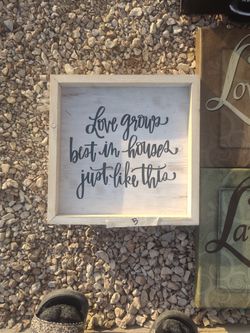 Love grows
best in houses
just like this
B
Lo
La